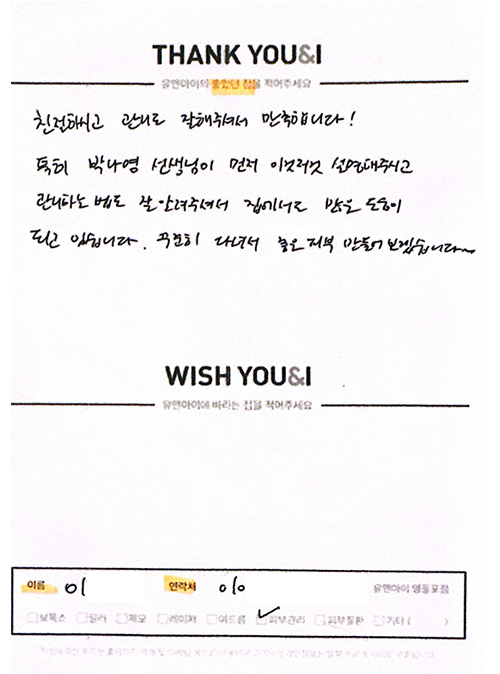 THANK YOU&I
유앤아이의 좋았던 점을 적어주세요
친절하시고 관리도 잘해주셔서 만족합니다!
특히 박나영 선생님이 먼저 이것저것 설명해주시고
관리하는 법도 잘 알려주셔서 집에서도 많은 도움이
되고 있습니다. 꾸준히 다녀서 좋은 피부 만들어 보겠습니다~
WISH YOU&I
유앤아이에 바라는 점을 적어주세요
이름 이 연락처 010 유앤아이 영등포점
보톡스 필러 제모 레이저 여드름 피부관리 피부질환 기타 ( )